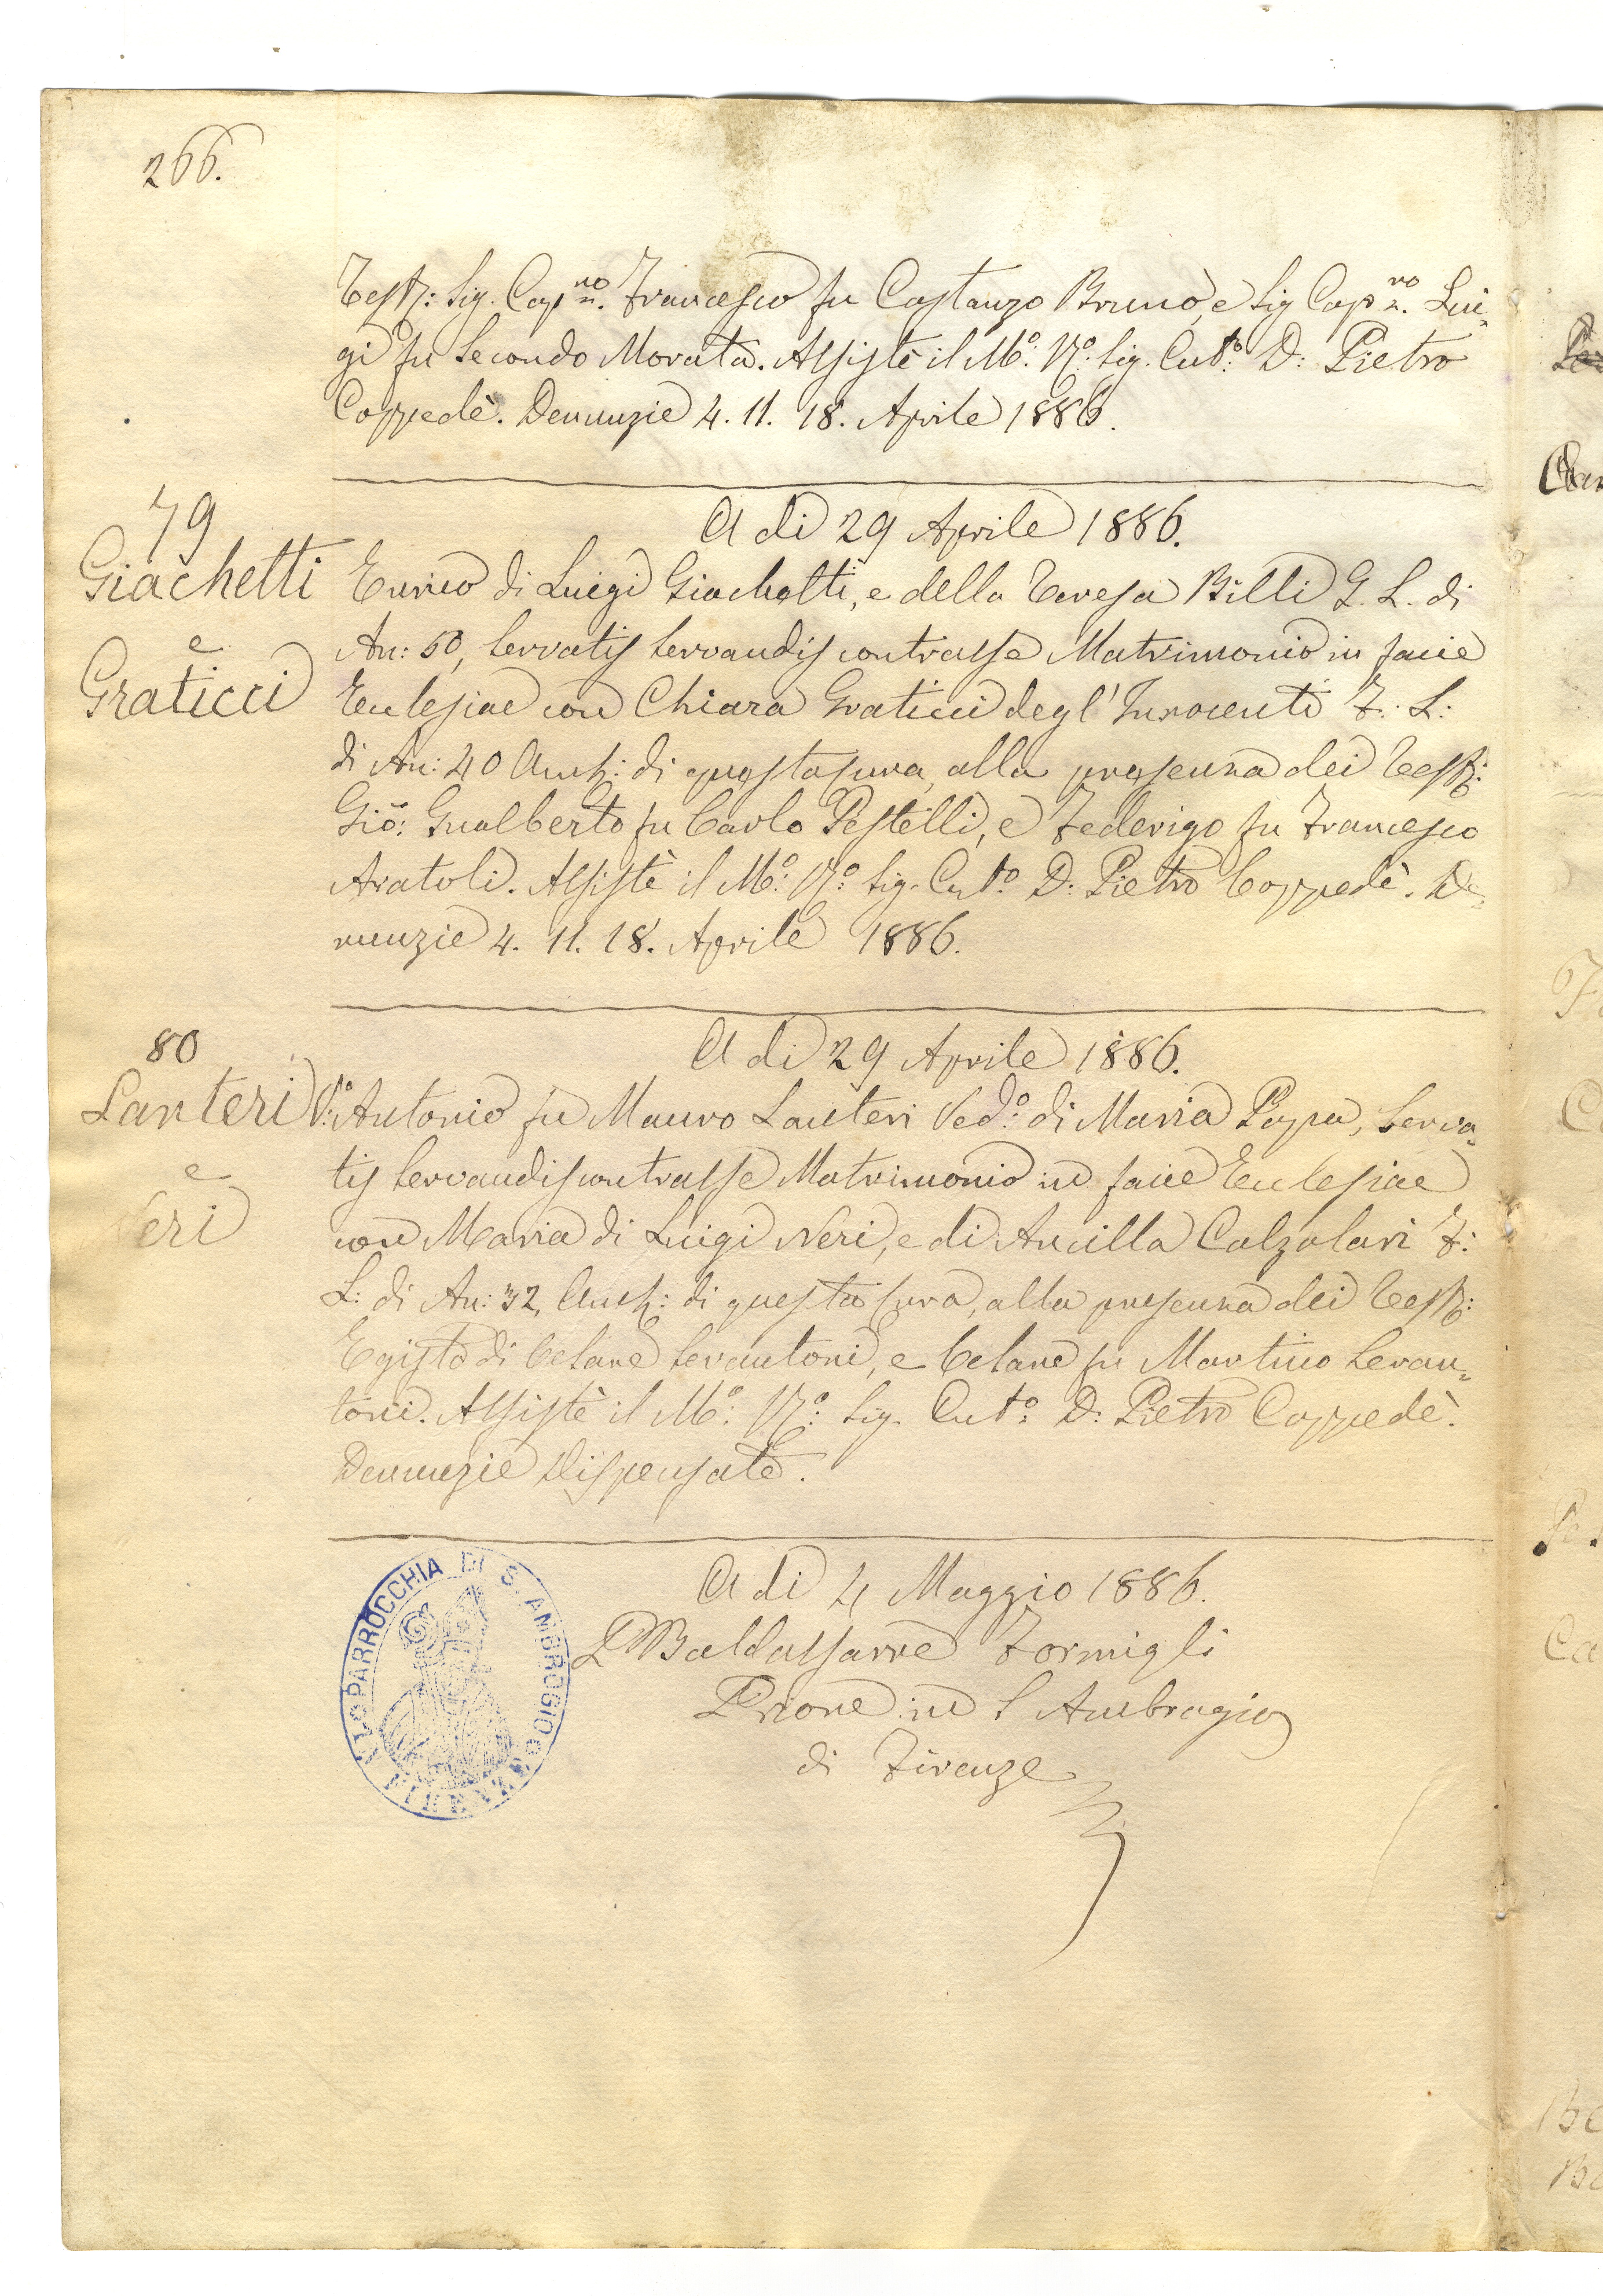 266.
Testi: Sig. Cap.no Francesco fu Costanzo Bruno, e Sig Cap.no Lui-
gi fu Secondo Morata. Assistè il M.o R.o Sig. Cut.o D: Pietro
Coppedè. Denunzie 4. 11. 18. Aprile 1886.
79
A dì 29 Aprile 1886.
Giachetti
e
Graticci
Enrico di Luigi Giachetti, e della Teresa Billi G. L. di
An: 50, servatis servandis contrasse Matrimonio in facie
Ecclesiae con Chiara Graticci degl'Innocenti F. L:
di An: 40 Amb: di questa cura, alla presenza dei Testi:
Gio: Gualberto fu Carlo Pestelli, e Federigo fu Francesco
Aratoli. Assistè il M.o R.o Sig. Cut.o D: Pietro Coppedè. De-
nunzie 4. 11. 18. Aprile 1886.
80
A dì 29 Aprile 1886.
Lanteri
e
Neri
Antonio fu Mauro Lanteri Ved.o di Maria Papa, Serva-
tis servandis contrasse Matrimonio in facie Ecclesiae
con Maria di Luigi Neri, e di Ancilla Calzolari F:
L: di An: 32, Amb: di questa cura, alla presenza dei Testi:
Egisto di Cesare Servantoni, e Cesare fu Martino Servan-
toni. Assistè il M.o R.o Sig. Cut.o D: Pietro Coppedè.
Denunzie Dispensate.
A dì 4 Maggio 1886.
P Baldassarre Formigli
Priore in S Ambrogio
di Firenze
PARROCCHIA DI S. AMBROGIO
FIRENZE